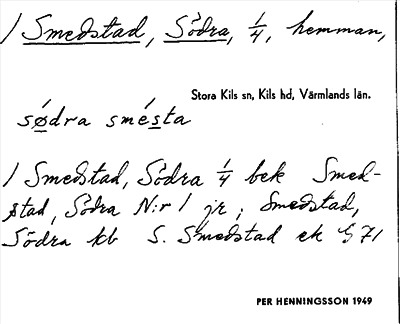 1 Smedstad, Södra, 1/4, hemman,
Stora Kils sn, Kils hd, Värmlands län.
sǿ̱dra smés̱ta
1 Smedstad, Södra 1/4 bek Smed-
stad, Södra N:r 1 jr; Smedstad,
Södra kb S. Smedstad ek § 71
PER HENNINGSSON 1949